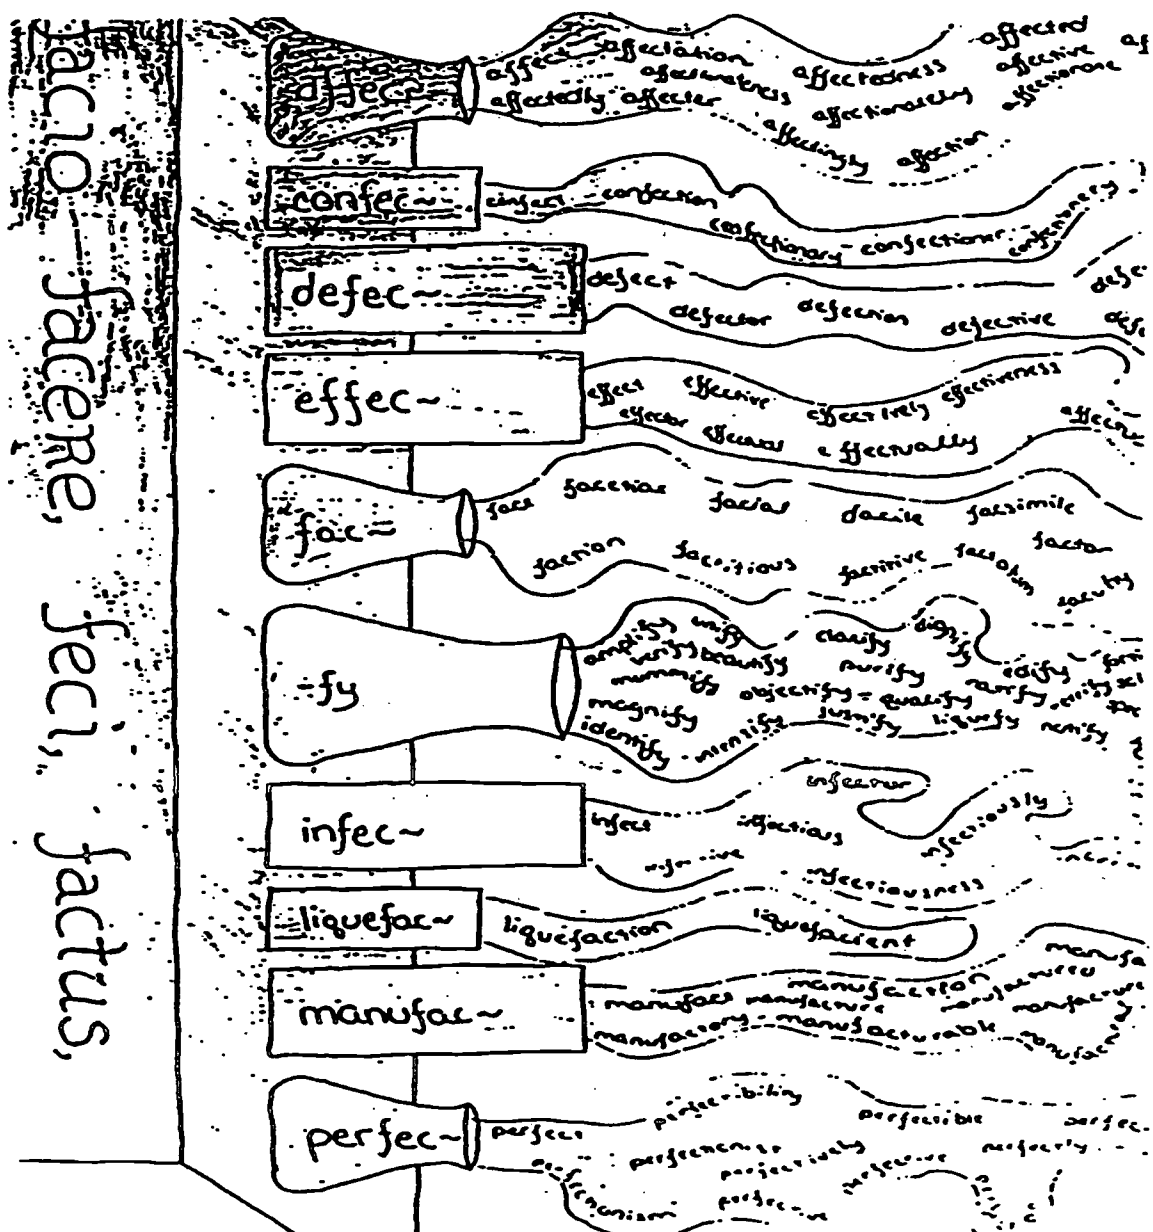 facio, facere, feci, factus,
affec~
affect affectation affectedness affected affective
affectedly affecter affectionately affectionate
affectingly affection
confec~
confect confection
confectionary confectioner confectionery
defec~
defect
defector defection defective
effec~
effect effective effectively effectiveness
effector effectual effectually
fac~
face facetiae facial facile facsimile
faction factitious factitive factotum factor
faculty
-fy
amplify unify clarify signify edify
verify beautify purify
mummify objectify qualify ramify
magnify justify liquefy notify
identify intensify
infec~
infect infectious infector infectiously
infective infectiousness
liquefac~
liquefaction liquefacient
manufac~
manufaction manufactured
manufact manufacture
manufactory manufacturable
perfec~
perfect perfectibility perfectible
perfectionist perfectively perfectly
perfectionism perfective